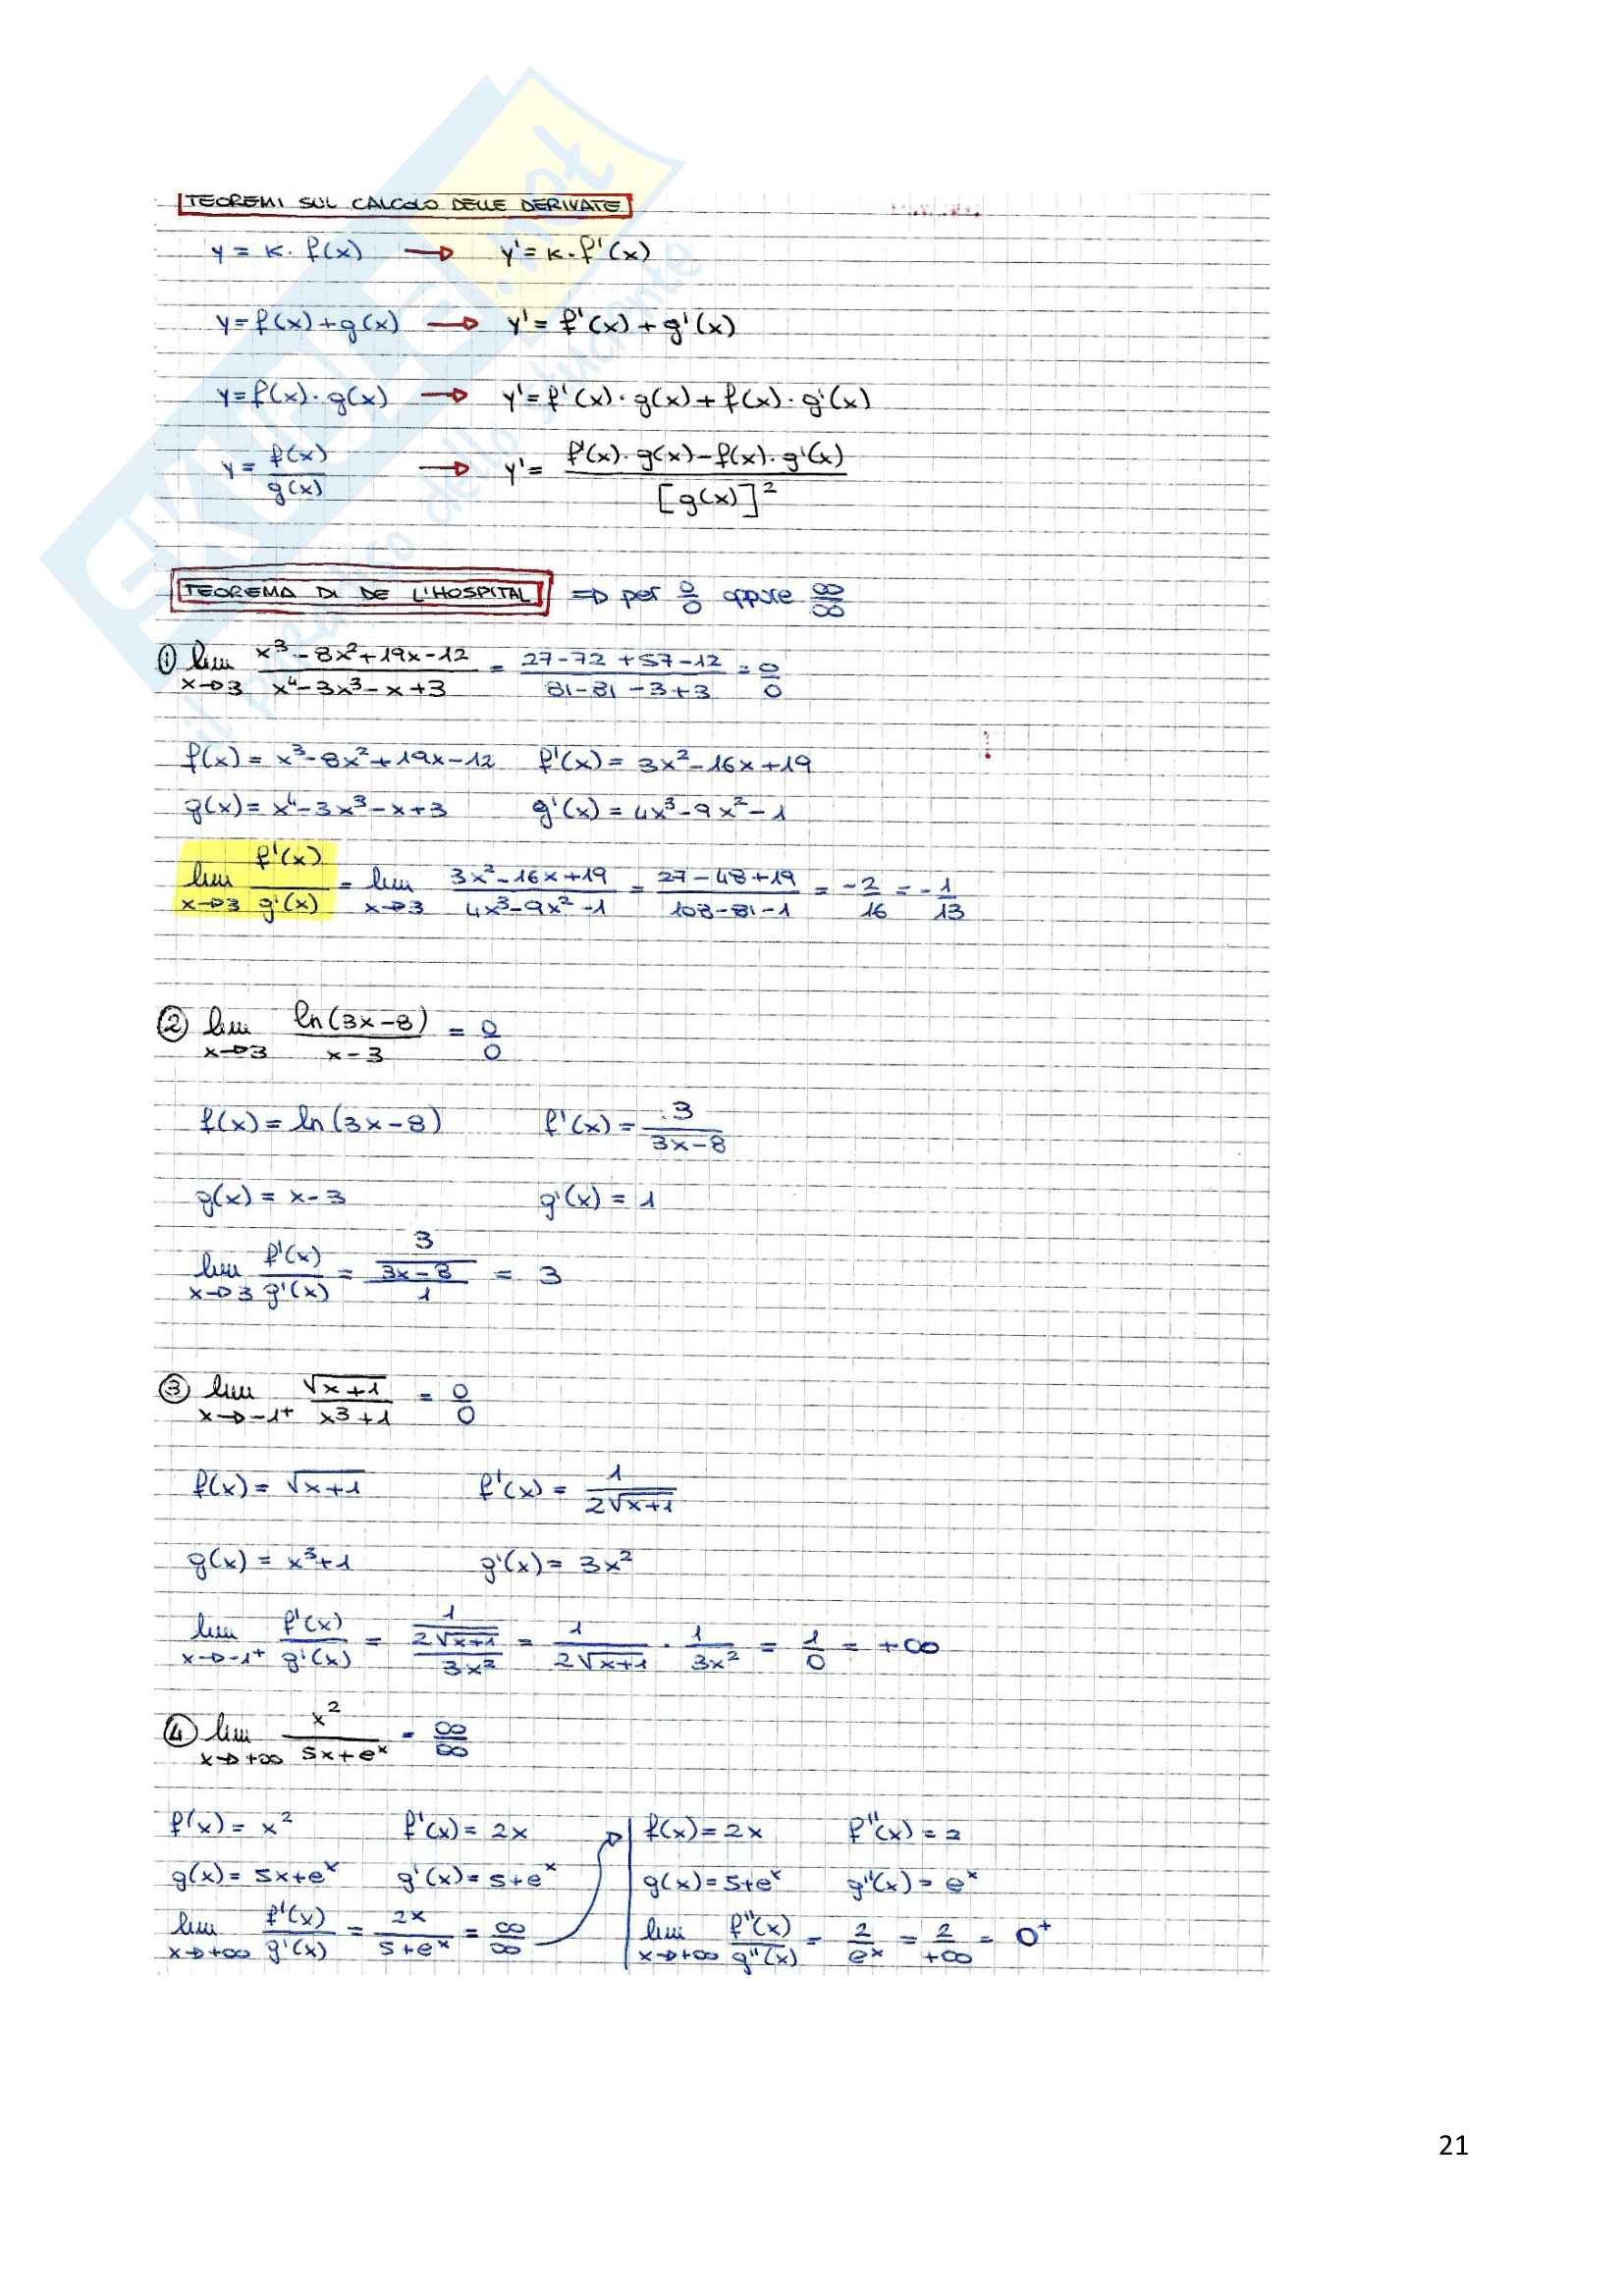 TEOREMI SUL CALCOLO DELLE DERIVATE
y = k · f(x) → y' = k · f'(x)
y = f(x) + g(x) → y' = f'(x) + g'(x)
y = f(x) · g(x) → y' = f'(x) · g(x) + f(x) · g'(x)
y = f(x)/g(x) → y' = (f'(x) · g(x) - f(x) · g'(x))/[g(x)]²
TEOREMA DI DE L'HOSPITAL ⇒ per 0/0 oppure ∞/∞
① lim x→3 (x³ - 8x² + 19x - 12)/(x⁴ - 3x³ - x + 3) = (27 - 72 + 57 - 12)/(81 - 81 - 3 + 3) = 0/0
f(x) = x³ - 8x² + 19x - 12 f'(x) = 3x² - 16x + 19
g(x) = x⁴ - 3x³ - x + 3 g'(x) = 4x³ - 9x² - 1
lim x→3 f'(x)/g'(x) = lim x→3 (3x² - 16x + 19)/(4x³ - 9x² - 1) = (27 - 48 + 19)/(108 - 81 - 1) = -2/16 = -1/13
② lim x→3 ln(3x - 8)/(x - 3) = 0/0
f(x) = ln(3x - 8) f'(x) = 3/(3x - 8)
g(x) = x - 3 g'(x) = 1
lim x→3 f'(x)/g'(x) = (3/(3x - 8))/1 = 3
③ lim x→-1⁺ √(x+1)/(x³ + 1) = 0/0
f(x) = √(x+1) f'(x) = 1/(2√(x+1))
g(x) = x³ + 1 g'(x) = 3x²
lim x→-1⁺ f'(x)/g'(x) = (1/(2√(x+1)))/(3x²) = 1/(2√(x+1)) · 1/(3x²) = 1/0 = +∞
④ lim x→+∞ x²/(5x + eˣ) = ∞/∞
f(x) = x² f'(x) = 2x
g(x) = 5x + eˣ g'(x) = 5 + eˣ
lim x→+∞ f'(x)/g'(x) = 2x/(5 + eˣ) = ∞/∞
f(x) = 2x f''(x) = 2
g(x) = 5 + eˣ g''(x) = eˣ
lim x→+∞ f''(x)/g''(x) = 2/eˣ = 2/+∞ = 0⁺
SKUOLA.net
il paradiso dello studente
21